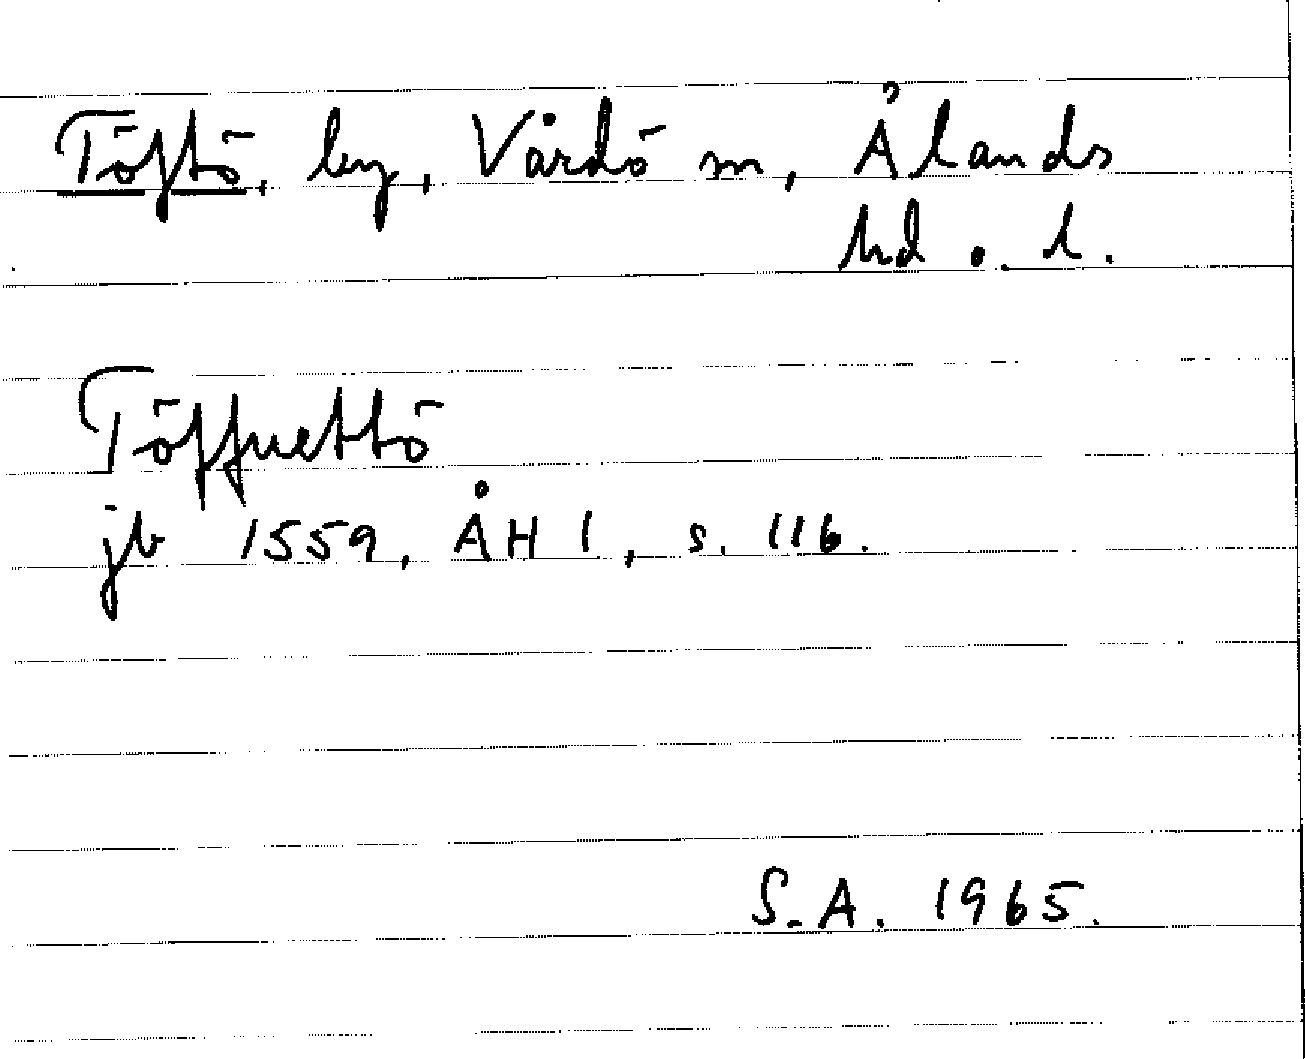 Töftö, by, Vårdö sn, Ålands
hd o. l.
Töffuettö
jb 1559, ÅH 1, s. 116.
S.A. 1965.